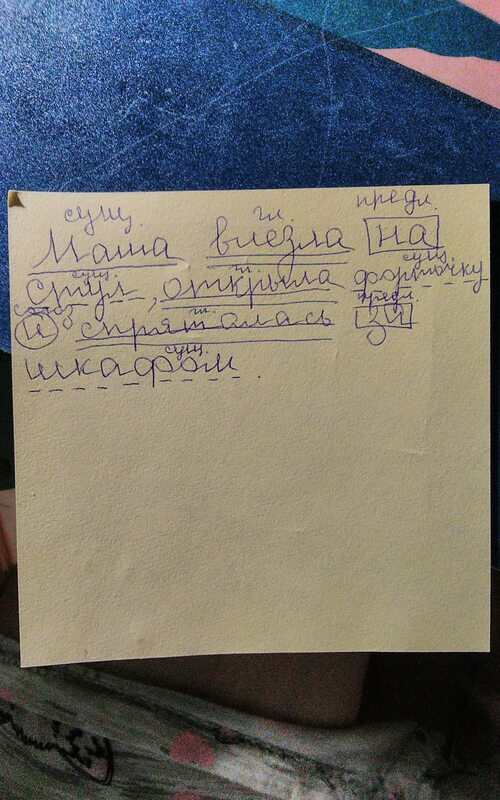 сущ. гл. предл.
Маша влезла на
сущ. гл. сущ.
стул, открыла форточку
союз гл. предл.
и спряталась за
сущ.
шкафом.